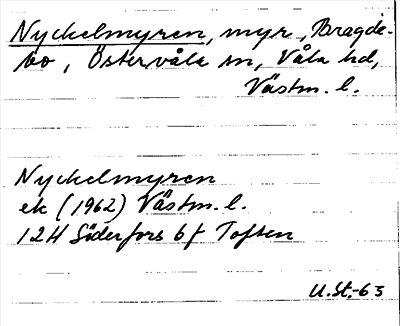 Nyckelmyren, myr, Bragde-
bo, Östervåla sn, Våla hd,
Västm. l.
Nyckelmyren
ek (1962) Västm. l.
12H Söderfors 6f Toften
U.St.-63